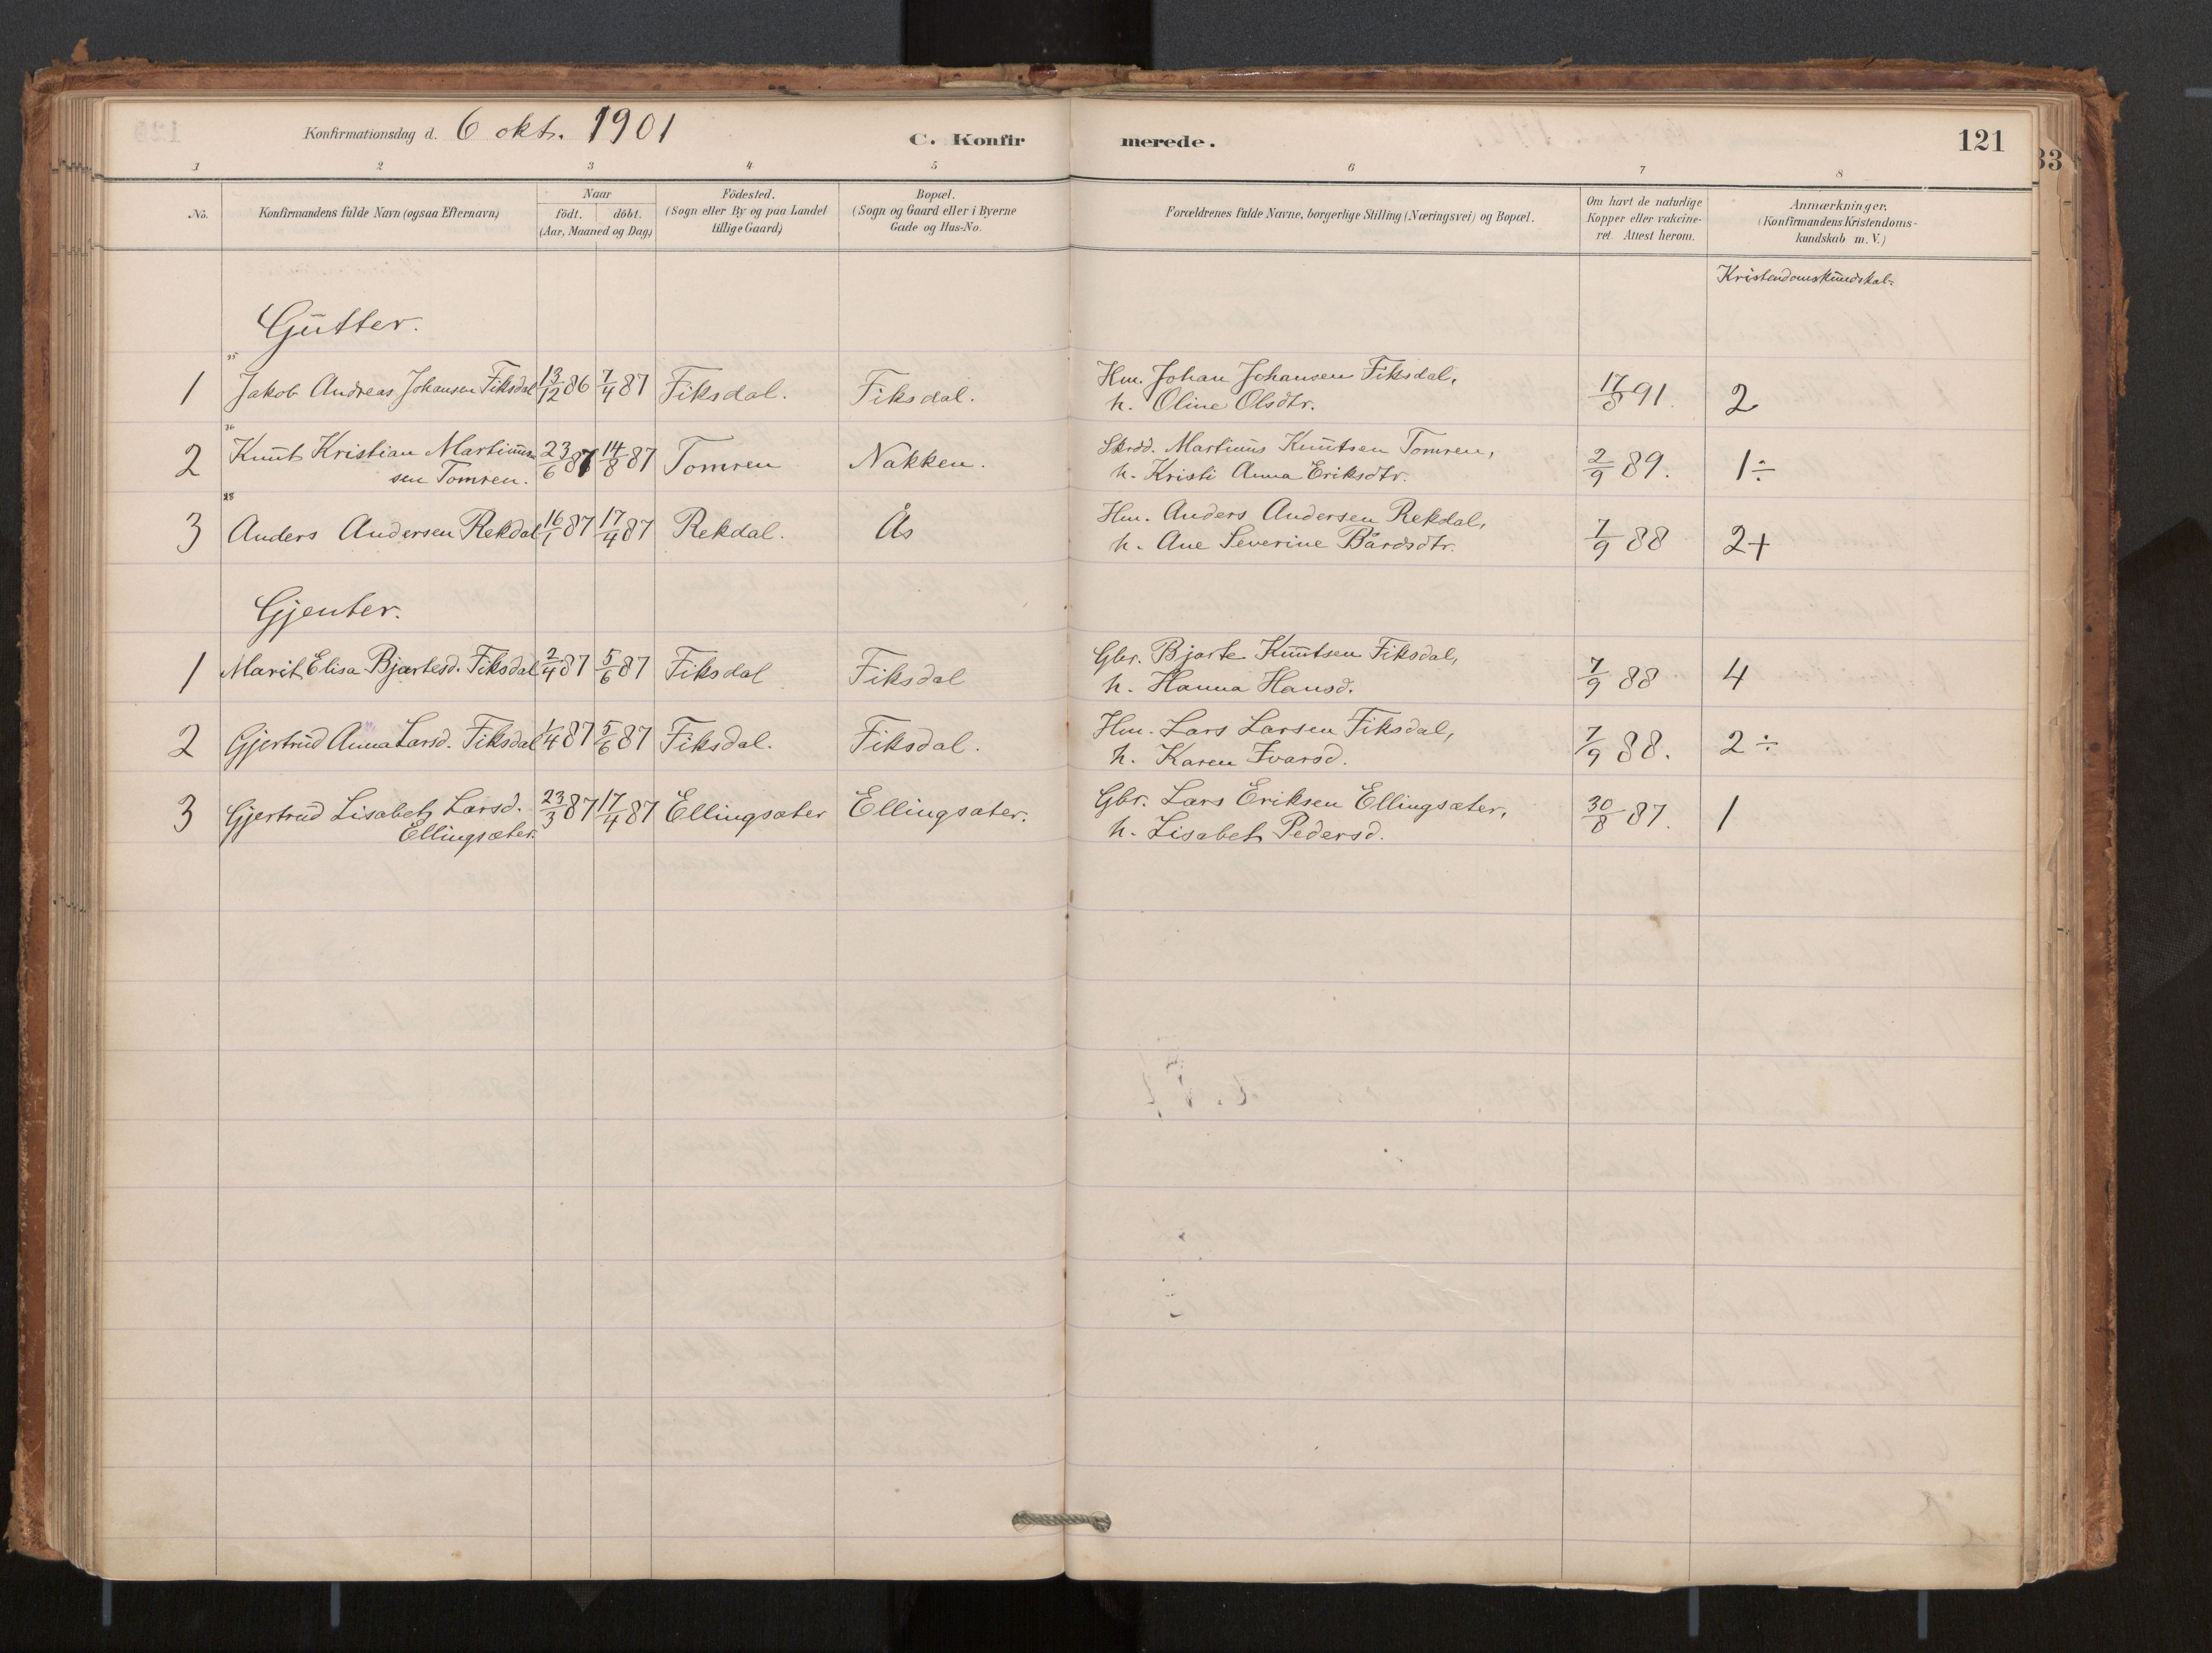 Konfirmationsdag d. 6 okt. 1901
C. Konfirmerede.
121
33
1 2 3 4 5 6 7 8
No.
Konfirmandens fulde Navn (ogsaa Efternavn)
Naar
födt. döbt.
(Aar, Maaned og Dag)
Födested.
(Sogn eller By og paa Landet
tillige Gaard)
Bopæl.
(Sogn og Gaard eller i Byerne
Gade og Hus-No.
Forældrenes fulde Navne, borgerlige Stilling (Næringsvei) og Bopæl.
Om havt de naturlige
Kopper eller vakcine-
ret. Attest herom.
Anmærkninger,
(Konfirmandens Kristendoms-
kundskab m. V.)
Kristendomskundskab
Gutter.
1 Jakob Andreas Johansen Fiksdal 13/12 86 7/4 87 Fiksdal. Fiksdal. Hm. Johan Johansen Fiksdal, 91. 2
h. Oline Olsdtr.
2 Knut Kristian Martinus- 23/6 87 14/8 87 Tomren Nakken. Skrdd. Martinus Knutsen Tomren, 2/9 89. 1÷
sen Tomren. h. Kristi Anna Eriksdtr.
3 Anders Andersen Rekdal 16/1 87 17/4 87 Rekdal. Ås Hm. Anders Andersen Rekdal, 7/9 88 2+
h. Ane Severine Bårdsdtr.
Gjenter.
1 Marit Elisa Bjartesd. Fiksdal 2/4 87 5/6 87 Fiksdal Fiksdal Gbr. Bjarte Knutsen Fiksdal, 7/9 88 4
h. Hanna Hansd.
2 Gjertrud Anna Larsd. Fiksdal 1/4 87 5/6 87 Fiksdal. Fiksdal. Hm. Lars Larsen Fiksdal, 7/9 88. 2÷
h. Karen Ivarsd.
3 Gjertrud Lisabet Larsd. 23/3 87 17/4 87 Ellingsæter Ellingsæter. Gbr. Lars Eriksen Ellingsæter, 30/8 87. 1
Ellingsæter. h. Lisabet Pedersd.